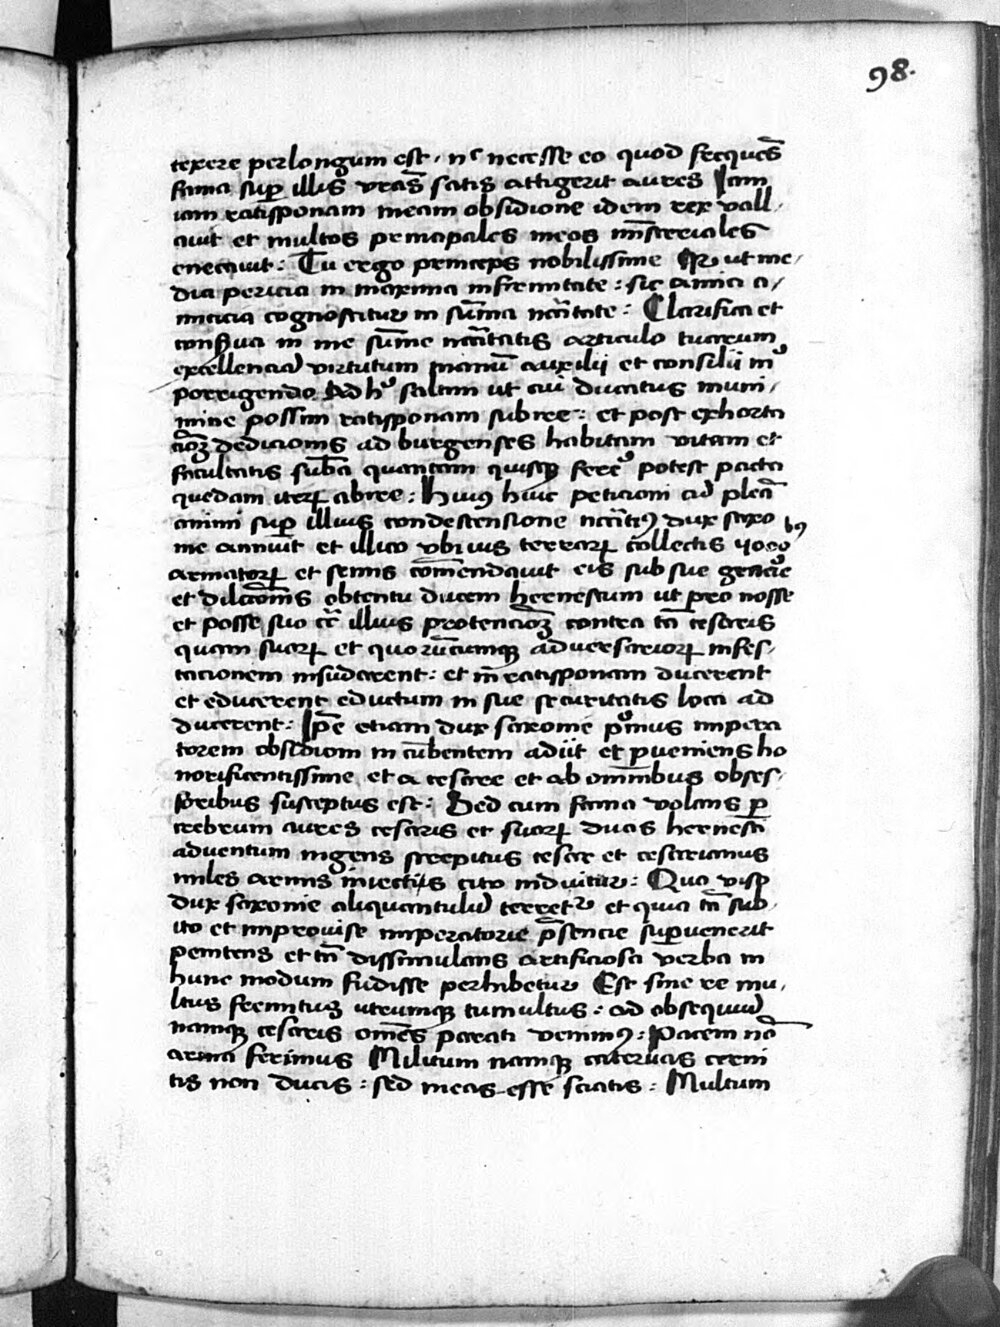 98.
texere perlongum est / nc necesse eo quod frequēs
fama sup illis vrās satis attigerit aures Iam
iam ratisponam meam obsidione idem rex vall/
auit et multos principales meos mīsteriales
enecauit : Tu ergo princeps nobilissime ut me/
dia pericia in maxima infirmitate : sic amica a/
micicia cognoscitur in sūma ncc̄itate : Clarifica et
conserua in me sūme ncc̄itatis articulo tuarum
excellenciā virtutum manū auxilij et consilij m
porrigendo Ad h saltim ut cum ducatus muni/
mine possim ratisponam subire : et post exhorta
cōꝫ dedicionis ad burgenses habitam vitam et
facultatis subā quantam quisqꝫ ferre potest pacta
quedam iterꝝ abire : Huius huic peticioni ad
animi sup illius condescensione dux saxo
nie annuit et illico vbi vis terrarꝝ collectis 4000 bꝰ
armatorꝝ et fermis comēndauit eis sub sue gracie
et dilcc̄onis obtentu ducem hernestum ut pro nosse
et posse suo illius protencōꝫ contra tā cesaris
quam suorꝝ et quorūcumqꝫ aduersariorꝝ infes/
tacionem insudarent : et in ratisponam ducerent
et educerent eductum in sue securitatis loca ad
ducerent : Ipē etiam dux saxonie pimus impera
torem obsidioni incūbentem adijt et pueniens ho
norificentissime et a cesare et ab omnibus obses/
soribus susceptus est : Sed cum fama volans p
crebrum aures cesaris et suorꝝ ducis hernesti
aduentum ingens strepitus cesar et cesarianus
miles armis iniectis cito induitur : Quo viso
dux saxonie aliquantulū terretur et quia tā sub/
ito et improuise imperatorie pn̄sencie superuenerit
penitens et tn̄ dissimulans artificiosa verba in
hunc modum fudisse perhibetur Est sine re mu/
ltus fremitus utrumqꝫ tumultus : ad obsequiū
namqꝫ cesaris omēs parati venimꝰ : Pacem nō
arma ferimus Militum namqꝫ cateruas cerni
tis non ducis : sed meas esse sciatis : Multum